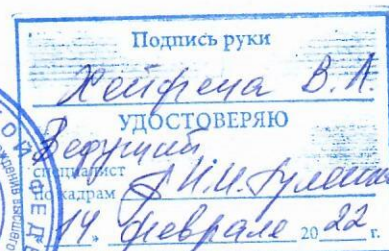 Подпись руки
Хейфеца В. А.
УДОСТОВЕРЯЮ
Ведущий
специалист
по кадрам И.И.
"14" февраля 2022 г.